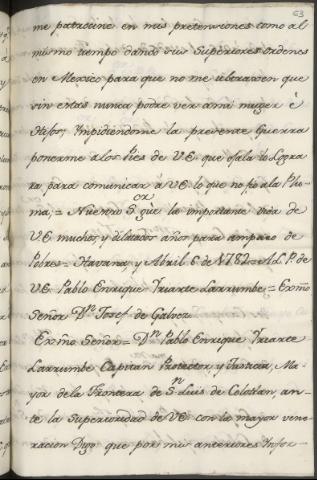 63
me patrocine en mis pretenciones como al
mismo tiempo dando sus Superiores ordenes
en Mexico para que no me
sin estas nunca podre ver ami muger è
Hijos; Ympidiendome la presente Guerra
ponerme alos Pies de V.E. que ojala lo Logra
ra, para comunicar a V.E. lo que no fio ala Plu-
ma;= Nuestro S.or güe la importante vida de
V.E. muchos, y dilatados años para amparo de
Pobres= Havana, y Abril 6 de 1782= A L. P. de
V.E. Pablo Enrique Yriarte Larrumbe= Exmô
Señor Dn Josef de Galvez
Exmô Señor= Dn Pablo Enrique Yriarte
Larrumbe Capitan Protector, y Justicia, Ma-
yor dela Frontera de Sn Luis de Colotlan, an-
te la Superioridad de V.E. con la mayor vene-
racion Digo que por mis anteriores Infor-